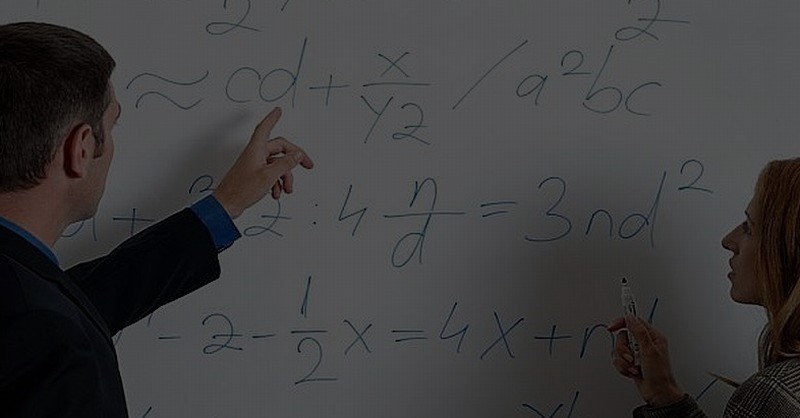 2 2
≈ cd + x/yz / a²bc
d + : 4 n/d = 3nd²
- 2 - 1/2 x = 4x + n